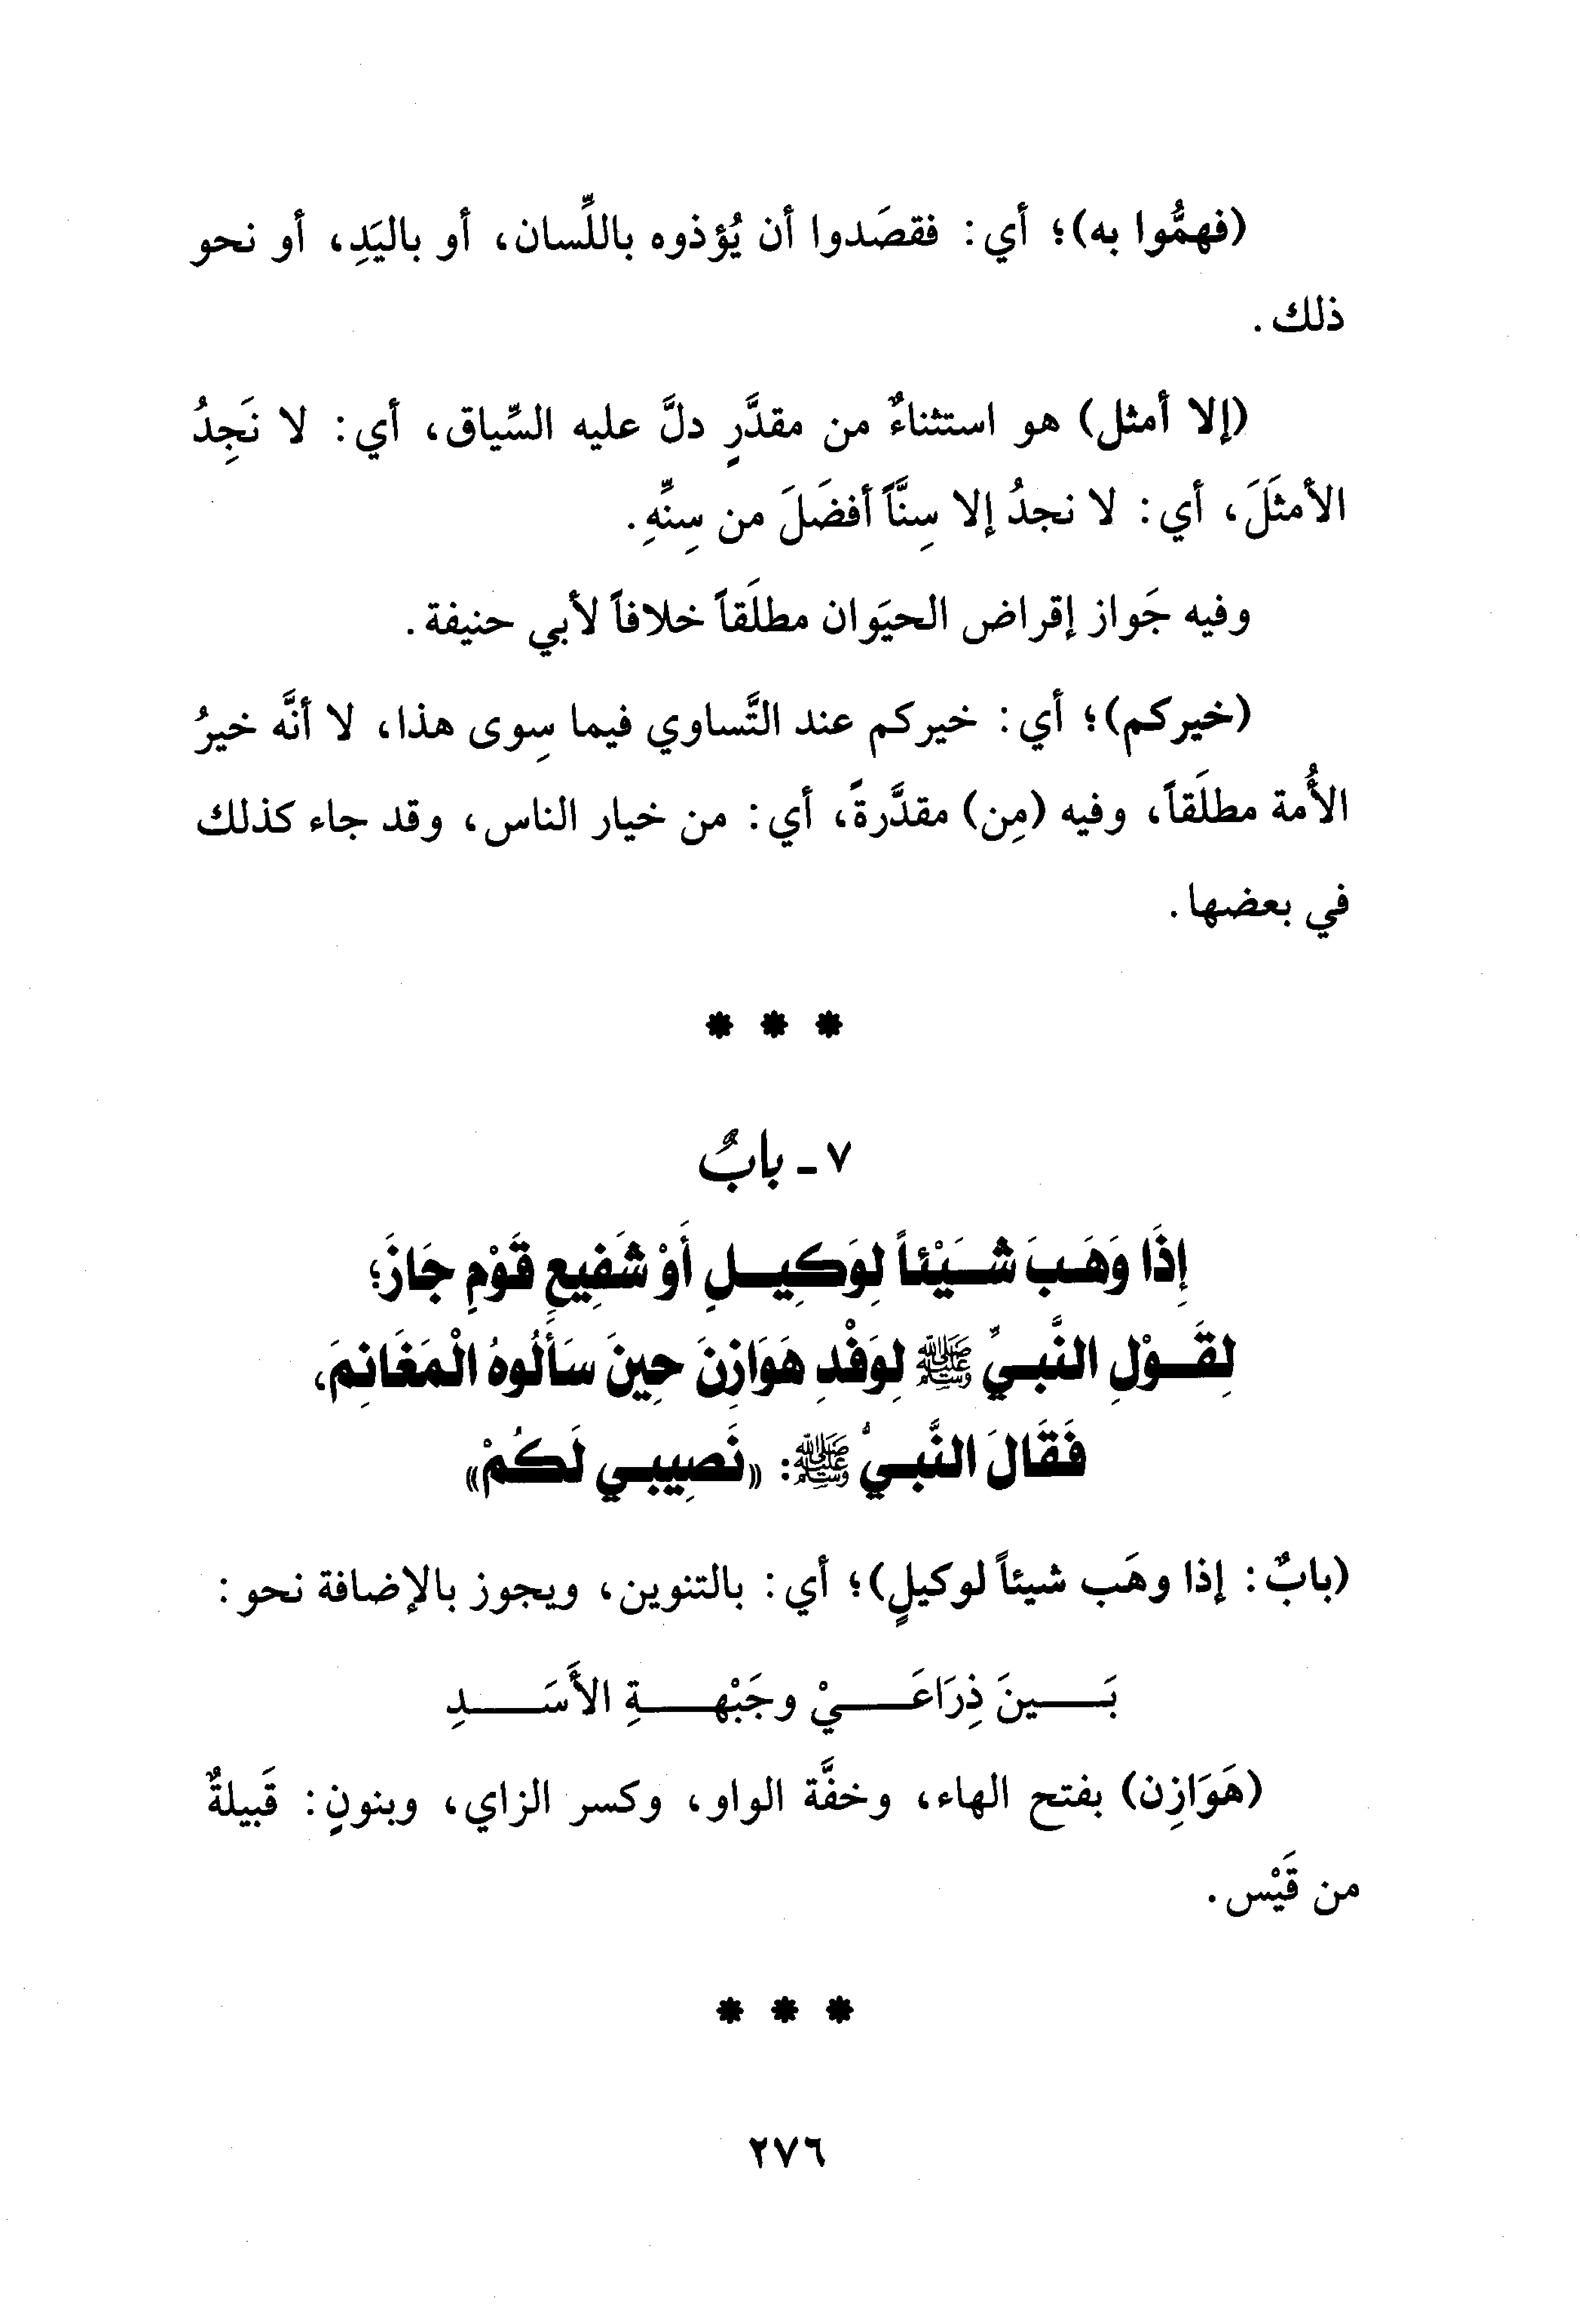 (فهمُّوا به)؛ أي: فقصَدوا أن يُؤذوه باللِّسان، أو باليَدِ، أو نحو
ذلك.
(إلا أمثل) هو استثناءٌ من مقدَّرٍ دلَّ عليه السِّياق، أي: لا نَجِدُ
الأمثَلَ، أي: لا نجدُ إلا سِنًّاً أفضَلَ من سِنِّهِ.
وفيه جَواز إقراض الحيَوان مطلَقاً خلافاً لأبي حنيفة.
(خيركم)؛ أي: خيركم عند التَّساوي فيما سِوى هذا، لا أنَّه خيرُ
الأُمة مطلَقاً، وفيه (مِن) مقدَّرةً، أي: من خيار الناس، وقد جاء كذلك
في بعضها.
* * *
٧ - بابٌ
إِذَا وَهَبَ شَيْئاً لِوَكِيلٍ أَوْ شَفِيعِ قَوْمٍ جَازَ؛
لِقَوْلِ النَّبيِّ ﷺ لِوَفْدِ هَوَازِنَ حِينَ سَأَلُوهُ الْمَغَانِمَ،
فَقَالَ النَّبيُّ ﷺ: «نَصِيبي لَكُمْ»
(بابٌ: إذا وهَب شيئاً لوكيلٍ)؛ أي: بالتنوين، ويجوز بالإضافة نحو:
بَـينَ ذِرَاعَـيْ وجَبْهـةِ الأَسَـدِ
(هَوَازِن) بفتح الهاء، وخفَّة الواو، وكسر الزاي، وبنونٍ: قَبيلةٌ
من قَيْس.
* * *
٢٧٦